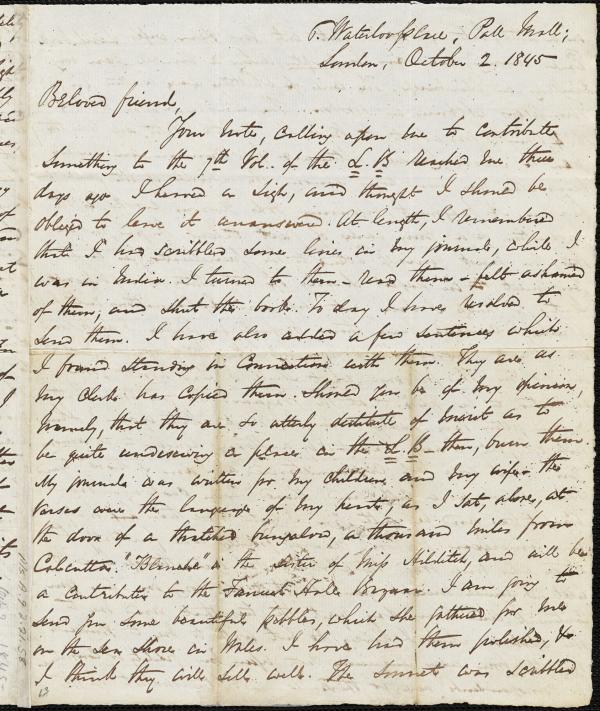 6. Waterloo place, Pall Mall;
London, October 2. 1845
Beloved friend,
Your note, calling upon me to contribute
something to the 7th Vol. of the L. B reached me three
days ago I heaved a sigh, and thought I should be
obliged to leave it unanswered. At length, I remembered
that I had scribbled some lines in my journal, while I
was in India. I turned to them - read them - felt ashamed
of them, and shut the book. To day I have resolved to
send them. I have also added a few sentences which
I found standing in connection with them. They are as
my Clerk has copied them. Should you be of my opinion,
namely, that they are so utterly destitute of merit as to
be quite undeserving a place in the L. B - then, burn them.
My journal was written for my children and my wife - the
verses were the language of my heart, as I sat, alone, at
the door of a thatched bungalow, a thousand miles from
Calcutta. "Blanche" is the sister of Miss Hilditch, and will be
a contributor to the Faneuil Hall Bazaar. I am going to
send you some beautiful pebbles, which she gathered for me
on the sea shore in Wales. I have had them polished, &
I think they will sell well. The sonnet was scribbled
13